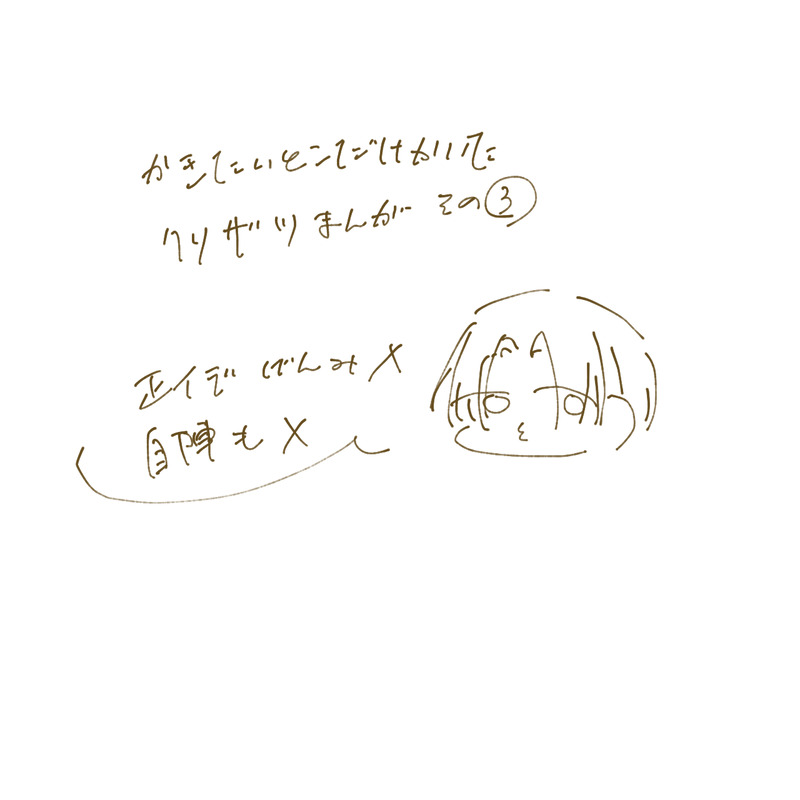 かきたいとこだけかいた
クリザツまんが その③
正イデ げんみ×
自陣も×